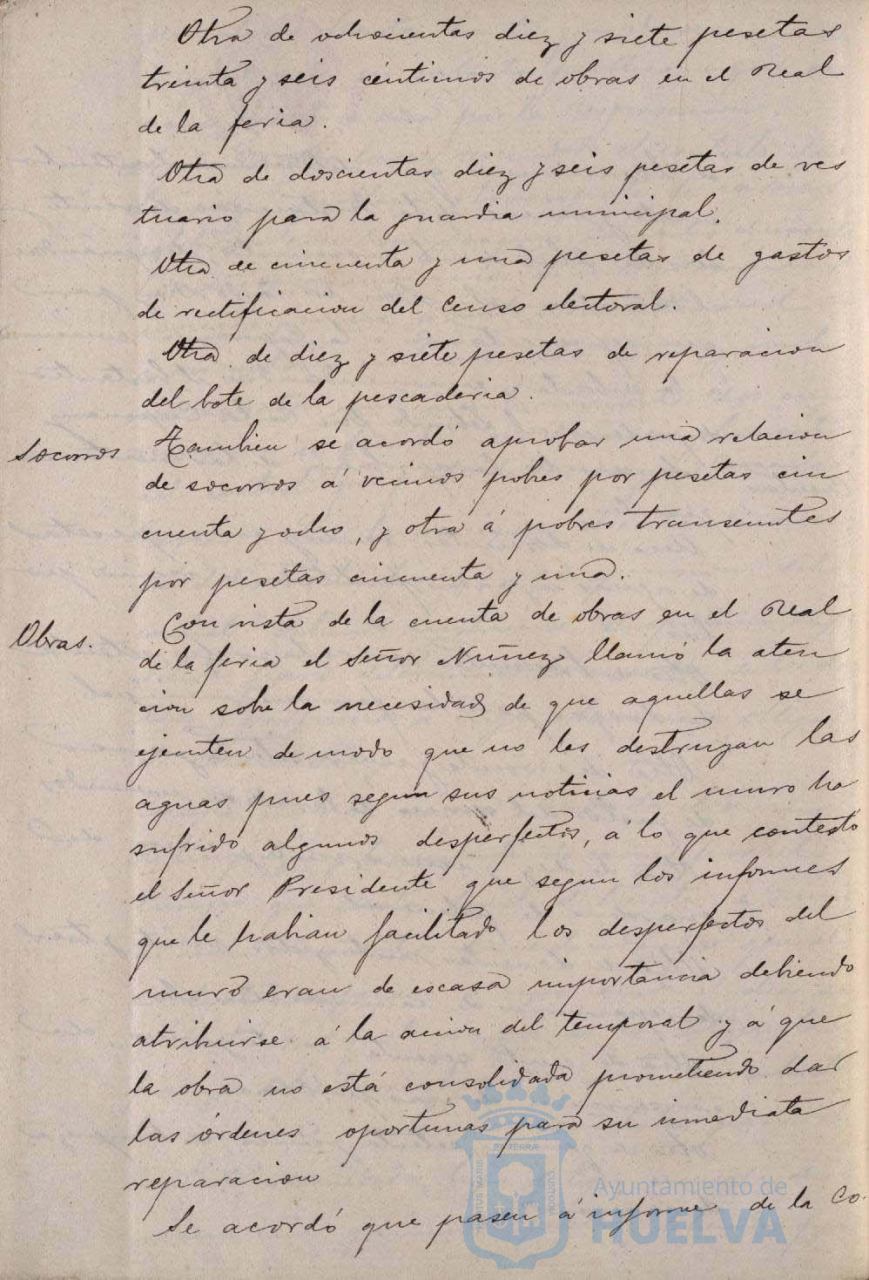 Otra de ochocientas diez y siete pesetas
treinta y seis céntimos de obras en el Real
de la feria.
Otra de doscientas diez y seis pesetas de ves
tuario para la guardia municipal.
Otra de cincuenta y una pesetas de gastos
de rectificacion del Censo electoral.
Otra de diez y siete pesetas de reparacion
del bote de la pescaderia.
Socorros
Tambien se acordó aprobar una relacion
de socorros á vecinos pobres por pesetas cin
cuenta y ocho, y otra á pobres transeuntes
por pesetas cincuenta y una.
Obras.
Con vista de la cuenta de obras en el Real
de la feria el Señor Nuñez llamó la aten
cion sobre la necesidad de que aquellas se
ejecuten de modo que no las destruyan las
aguas pues segun sus noticias el muro ha
sufrido algunos desperfectos, á lo que contestó
el Señor Presidente que segun los informes
que le habian facilitado los desperfectos del
muro eran de escasa importancia debiendo
atribuirse á la accion del temporal y á que
la obra no está consolidada prometiendo dar
las órdenes oportunas para su inmediata
reparacion
Se acordó que pasen á informe de la Co-
Ayuntamiento de
HUELVA